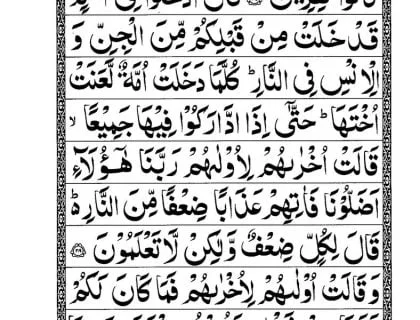 قَدۡ خَلَتۡ مِنۡ قَبۡلِكُمۡ مِّنَ الۡجِنِّ وَ
الۡاِنۡسِ فِى النَّارِ‌ ؕ كُلَّمَا دَخَلَتۡ اُمَّةٌ لَّعَنَتۡ
اُخۡتَهَا‌ ؕ حَتّٰۤى اِذَا ادَّارَكُوۡا فِيۡهَا جَمِيۡعًا ۙ
قَالَتۡ اُخۡرٰٮهُمۡ لِاُوۡلٰٮهُمۡ رَبَّنَا هٰٓؤُلَۤاءِ
اَضَلُّوۡنَا فَاٰتِهِمۡ عَذَابًا ضِعۡفًا مِّنَ النَّارِ‌ ؕ
قَالَ لِكُلٍّ ضِعۡفٌ وَّلٰـكِنۡ لَّا تَعۡلَمُوۡنَ ﴿۳۸﴾
وَقَالَتۡ اُوۡلٰٮهُمۡ لِاُخۡرٰٮهُمۡ فَمَا كَانَ لَـكُمۡ